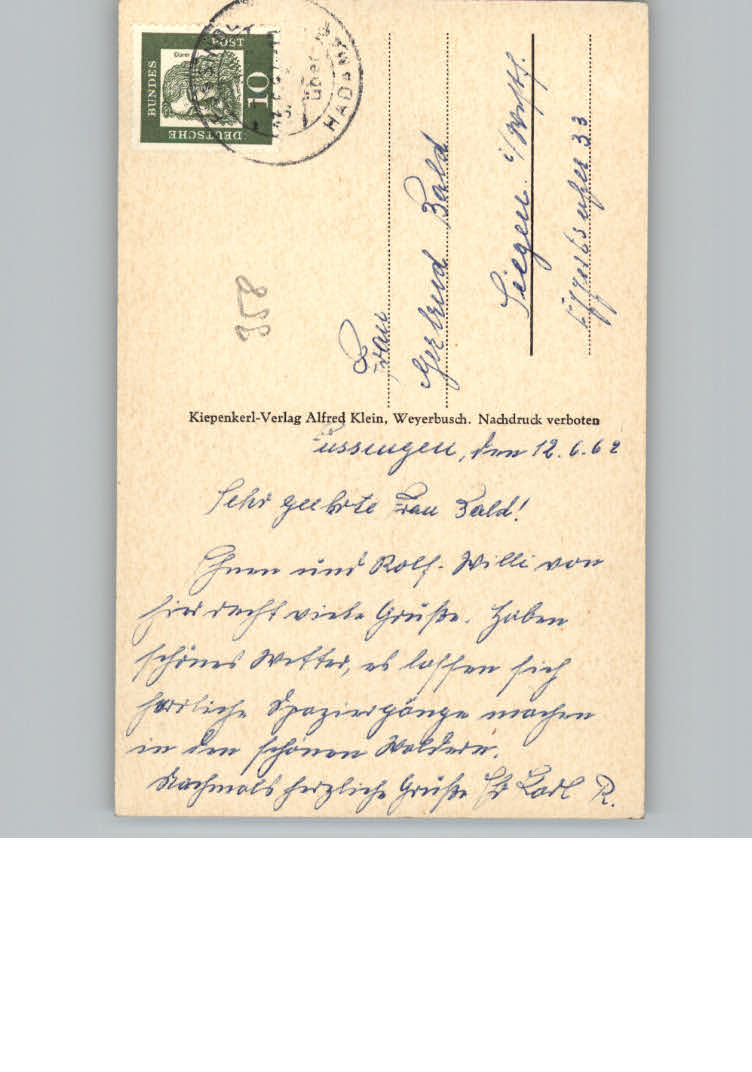 DEUTSCHE
BUNDES
POST
10
HADAMAR
über
358
Frau
Gertrud Bald
Siegen i/Westf.
33
Kiepenkerl-Verlag Alfred Klein, Weyerbusch. Nachdruck verboten
Fussingen, den 12.6.62
Sehr geehrte Frau Bald!
Ihnen und Rolf-Willi von
hier recht viele Grüße. Haben
schönes Wetter, es lassen sich
herrliche Spaziergänge machen
in den schönen Wäldern.
Nochmals herzliche Grüße Ihr Karl R.